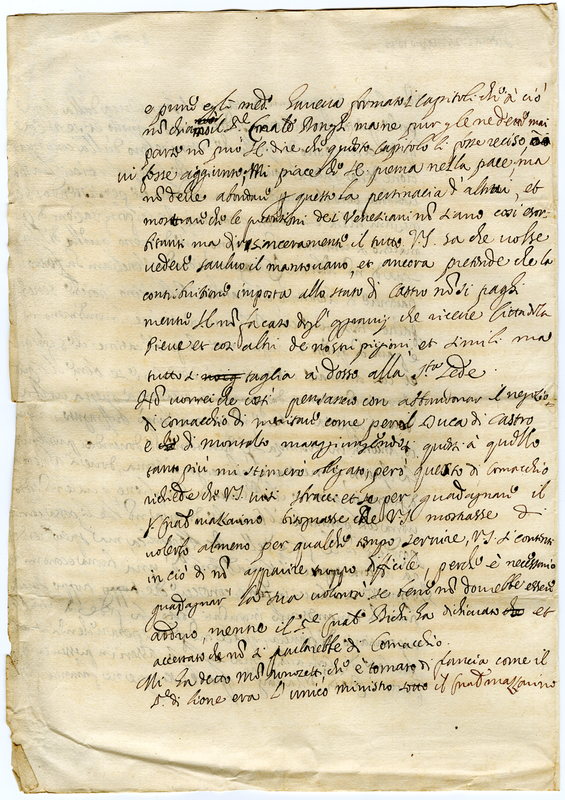 e pure egli med.º haveva formato i capitoli che à ciò
non chiamò il S.r Conte Rongh. ma ne pur gle ne dette mai
parte non può il dire che questo capitolo li fosse reciso,
vi fosse aggiunto. Mi piace che si prema nella pace, ma
non deve abondare questo la pertinacia d'altrui, et
mostrare che le pretensioni del Venetiani non siano così esor-
bitanti ma dir sinceramente il tutto V.S. sa che volse
vedere salvo il mantovano, et ancora pretende che la
contributione imposta allo stato di Castro non si paghi
mentre si non fa caso degl' che riceve Cittadella
Pieve et così altri de nostri prigioni et simili ma
tutto si taglia à dosso alla S.ta Sede.
Non vorrei che così pensassero con abbandonar il negotio
di Comacchio di meritare come per il Duca di Castro
e di montalto ma questi à quello
tanto più mi stimerò obligato però questo di Comacchio
richiede che V.S. stracci et se per guadagnare il
S.r Card. Mazzarino bisognasse che V.S. mostrasse di
volerlo almeno per qualche tempo servire, V.S. si contenti
in ciò di non apparire troppo difficile, perche è necessario
guadagnar la sua volontà se bene non dovrebbe essere
arduo, mentre il S.r Card. Bichi ha dichiarato et
accertato che non si parlarebbe di Comacchio.
Mi ha detto mons. che è tornato di francia come il
S.r di Lione era l'unico ministro sotto il Card. Mazzarino